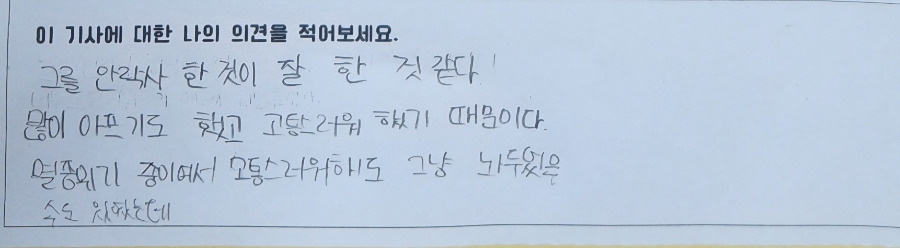 이 기사에 대한 나의 의견을 적어보세요.
그를 안락사 한 것이 잘 한 것 같다.
많이 아프기도 했고 고통스러워 했기 때문이다.
멸종위기 종이어서 고통스러워해도 그냥 놔두었을
수도 있었는데